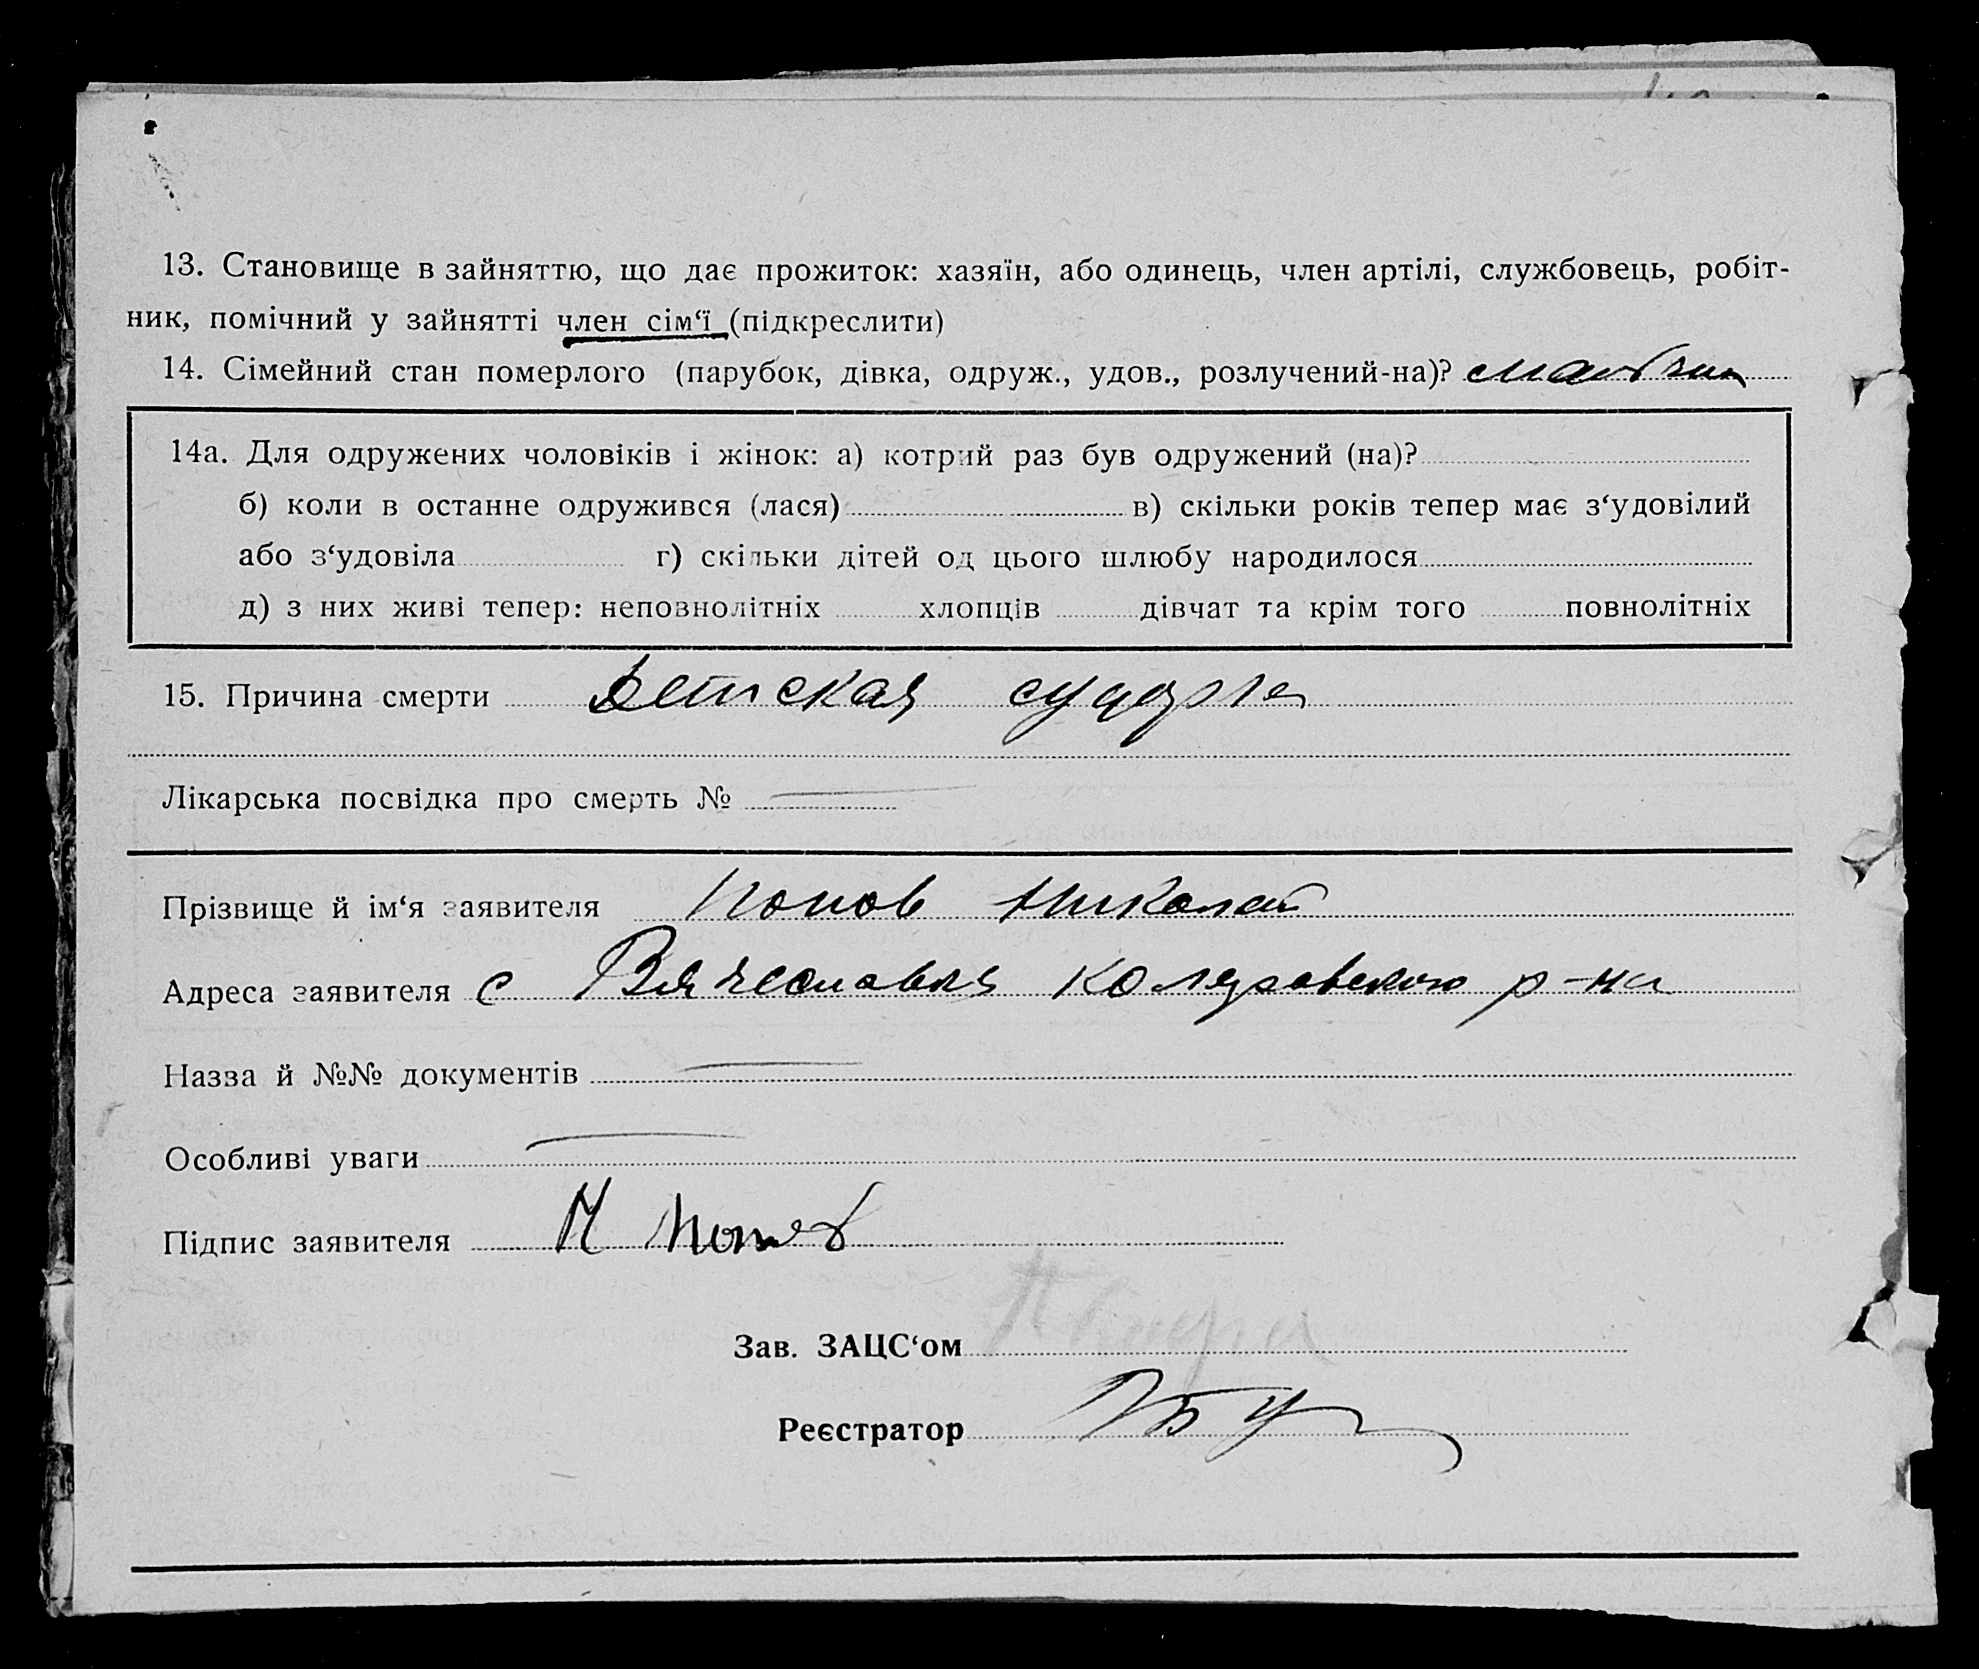 13. Становище в зайняттю, що дає прожиток: хазяїн, або одинець, член артілі, службовець, робіт-
ник, помічний у зайнятті член сім‘ї (підкреслити)
14. Сімейний стан померлого (парубок, дівка, одруж., удов., розлучений-на)?
14а. Для одружених чоловіків і жінок: а) котрий раз був одружений (на)?
б) коли в останне одружився (лася) в) скільки років тепер має з‘удовілий
або з‘удовіла г) скільки дітей од цього шлюбу народилося
д) з них живі тепер: неповнолітніх хлопців дівчат та крім того повнолітніх
15. Причина смерти Детская
Лікарська посвідка про смерть №
Прізвище й ім‘я заявителя Попов Николай
Адреса заявителя с Вячеславка Коларовского р-на
Назва й №№ документів
Особливі уваги
Підпис заявителя Н Попов
Зав. ЗАЦС‘ом
Реєстратор